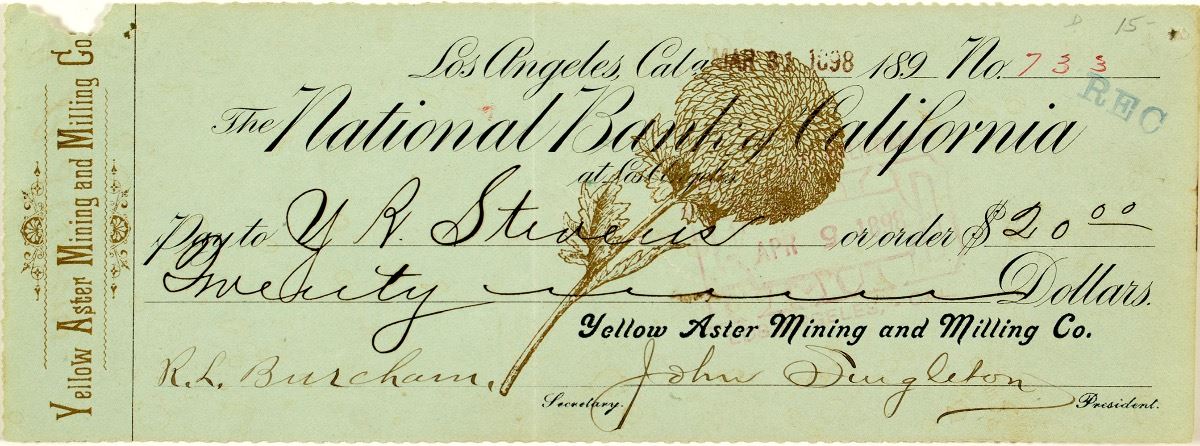 Yellow Aster Mining and Milling Co.
D 15-
Los Angeles, Cala. MAR 31 1898 189 No. 733
REC
The National Bank of California
at Los Angeles
Pay to Y R. Stevens or order $20 00
APR 9 1898
Twenty Dollars.
Yellow Aster Mining and Milling Co.
R. L. Burcham. John Singleton
Secretary. President.